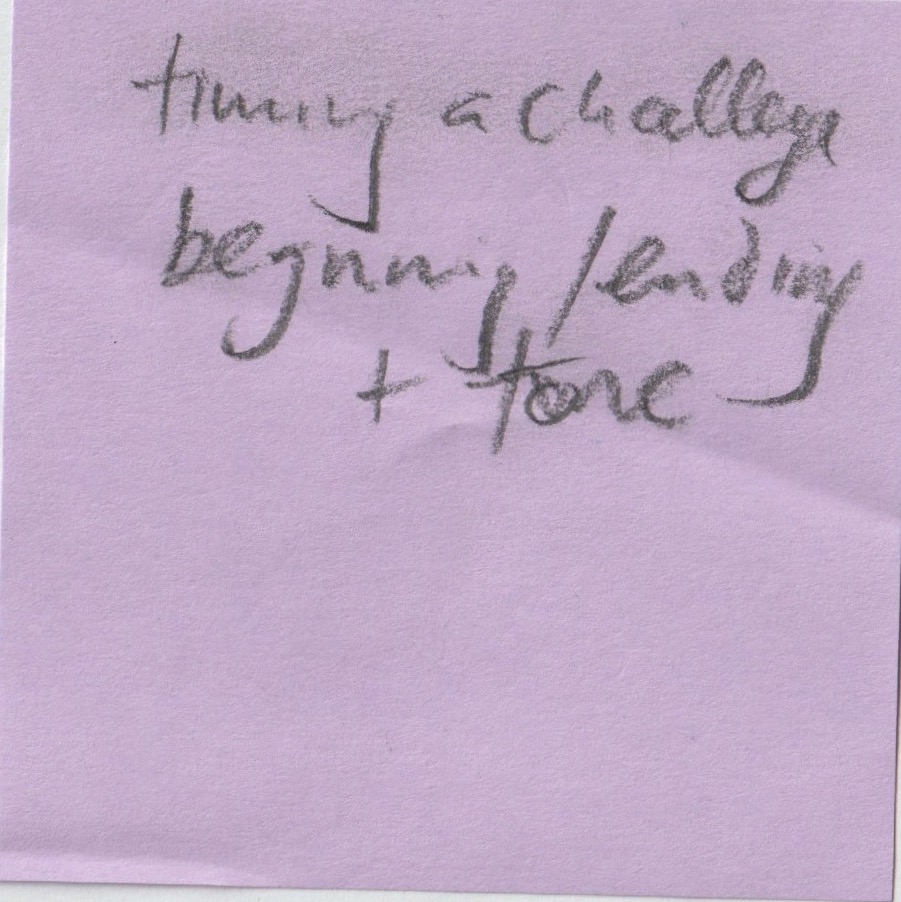 timing a challenge
beginning / ending
+ tone